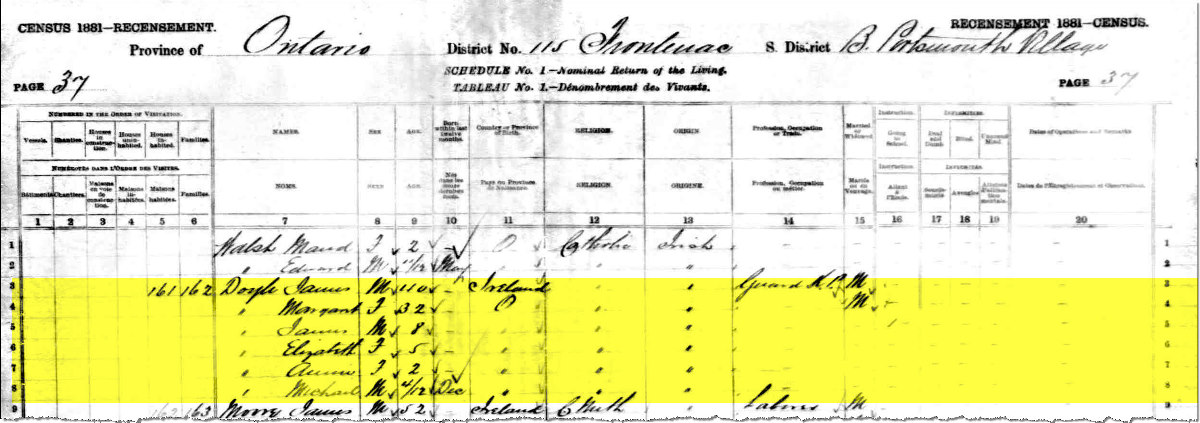 CENSUS 1881—RECENSEMENT. RECENSEMENT 1881—CENSUS.
Province of Ontario District No. 115 Frontenac S. District B. Portsmouth Village
SCHEDULE No. 1.—Nominal Return of the Living.
PAGE 37 TABLEAU No. 1.—Dénombrement des Vivants. PAGE 37
NUMBERED IN THE ORDER OF VISITATION. NAMES. SEX AGE. Born within last twelve months. Country or Province of Birth. RELIGION. ORIGIN Profession, Occupation or Trade. Married or Widowed Instruction. INFIRMITIES. Dates of Operations and Remarks
Vessels. Shanties. Houses in construction. Houses uninhabited. Houses inhabited. Families. Going to School. Deaf and Dumb Blind. Unsound Mind.
NUMÉROTÉS DANS L'ORDRE DES VISITES. NOMS. SEXE AGE. Nés dans les douze derniers mois. Pays ou Province de Naissance. RELIGION. ORIGINE. Profession, Occupation ou métier. Mariés ou en Veuvage. Instruction INFIRMITÉS. Dates de l'Enregistrement et Observations.
Bâtiments Chantiers. Maisons en voie de construction. Maisons inhabitées. Maisons habitées. Familles. Allant à l'École. Sourds-muets Aveugles
1 2 3 4 5 6 7 8 9 10 11 12 13 14 15 16 17 18 19 20
1 Walsh Maud F 2 - O Catholic Irish 1
2 " Edward M 11/12 May " " " 2
3 161 162 Doyle James M - Ireland " " Guard K.P. M 3
4 " Margaret F 32 O " " M 4
5 " James M 8 " " " 5
6 " Elizabeth F 5 " " " 6
7 " Annie F 2 " " " 7
8 " Michael M 4/12 Dec " " " 8
9 162 163 Moore James M 52 Ireland C " Laborer M 9